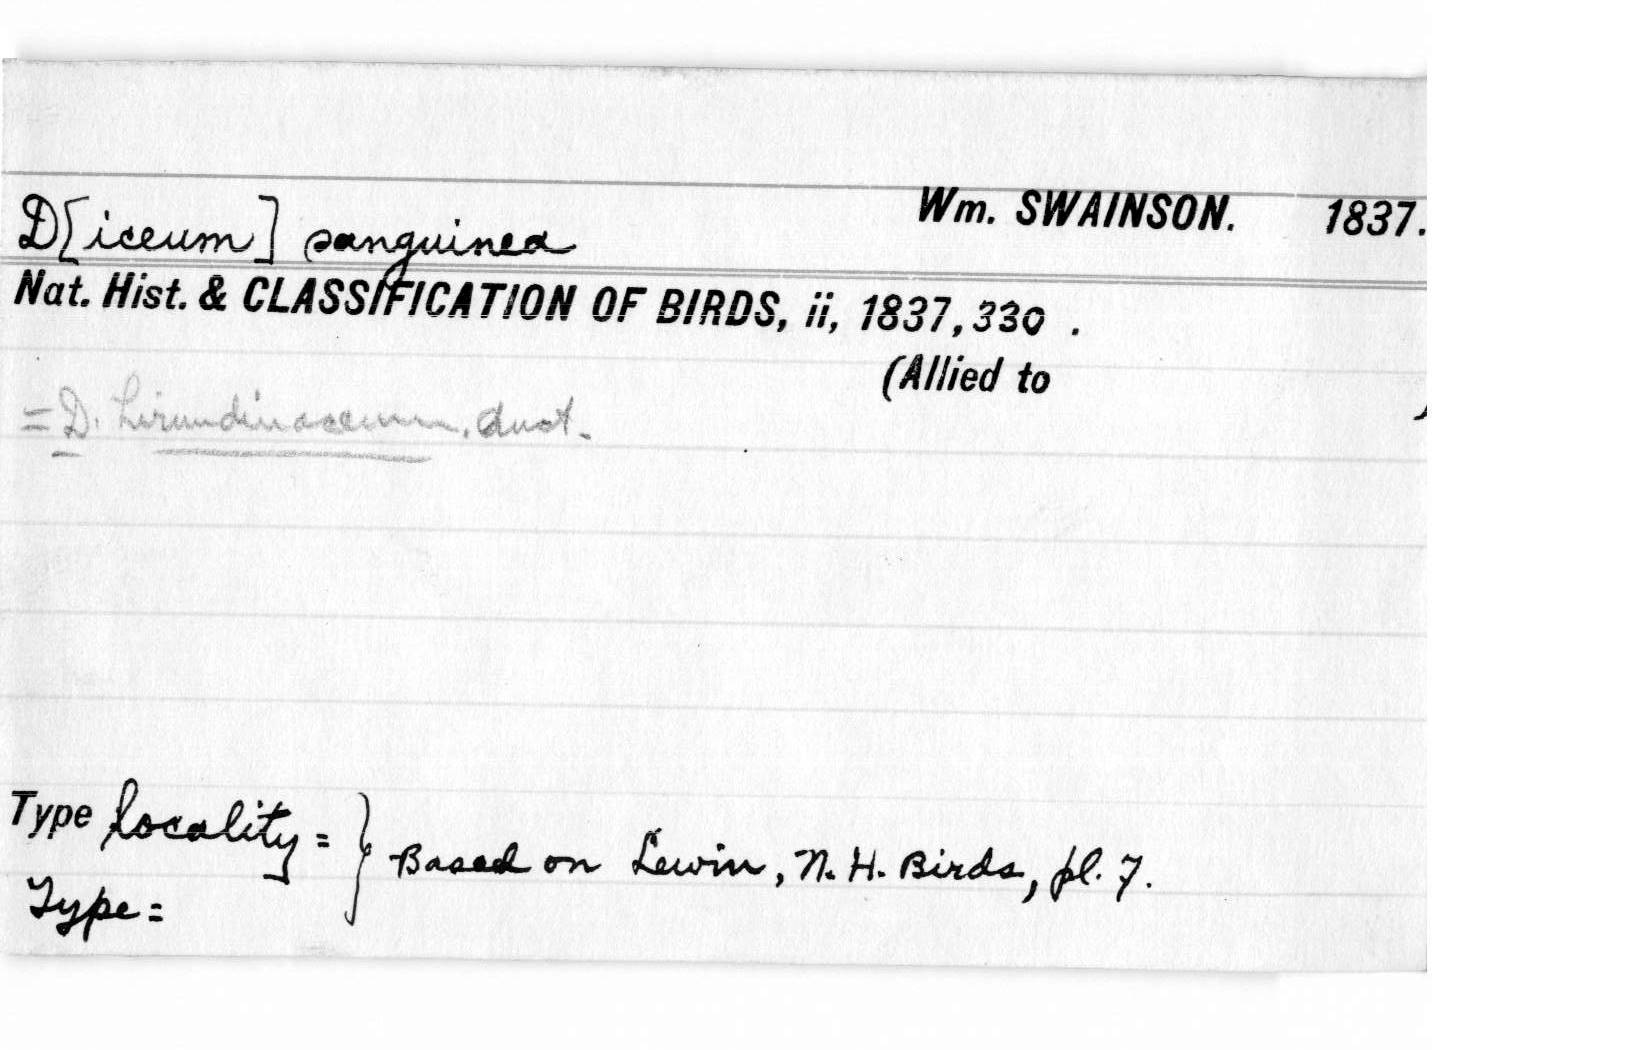 D[iceum] sanguinea Wm. SWAINSON. 1837.
Nat. Hist. & CLASSIFICATION OF BIRDS, ii, 1837, 330 .
(Allied to )
= D. hirundinaceum, auct.
Type locality = } Based on Lewin, N. H. Birds, pl. 7.
Type =